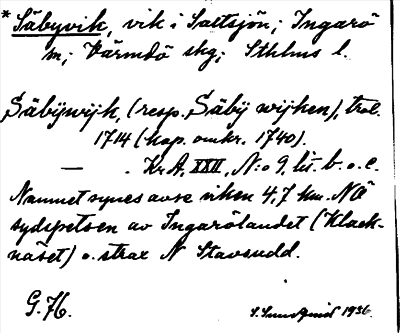 * Säbyvik, vik i Saltsjön; Ingarö
sn; Värmdö skg; Sthlms l.
Säbywijk, (resp. Säby wijken), trol.
1714 (kop. omkr. 1740).
— . Kr A, XXII, N:o 9, lit. b. o. c.
Namnet synes avse viken 4,7 km. NÖ
sydspetsen av Ingarölandet (Klack-
näset) o. strax N Stavsudd.
G. 76.
1936